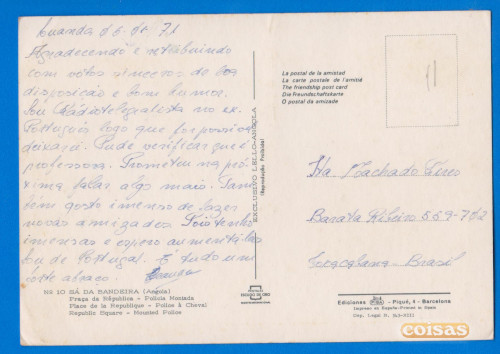 Luanda
71
Agradecendo e retribuindo
com votos sinceros de boa
disposição e bom humor.
Sou Rádiotelegrafista no ex.
Português logo que for possivel
deixará. Pude verificar que é
professora. Prometeu na pró-
xima falar algo mais. Tam
bém gosto imenso de fazer
novas amizades. Pois tenho
imensas e espero aumentá-las
Sou de Portugal. E tudo um
forte abraço.
SÁ DA BANDEIRA (Angola)
Praça da República - Polícia Montada
Place de la Republique - Police à Cheval
Republic Square - Mounted Police
EXCLUSIVO LELLO-ANGOLA
(Reprodução Proibida)
La postal de la amistad
La carte postale de l'amitié
The friendship post card
Die Freundschaftskarte
O postal da amizade
Machado
Barata Ribeiro 559-702
Copacabana - Brasil
Ediciones - Piqué, 4 - Barcelona
Impreso en España-Printed in Spain
Dep. Legal B.
coisas